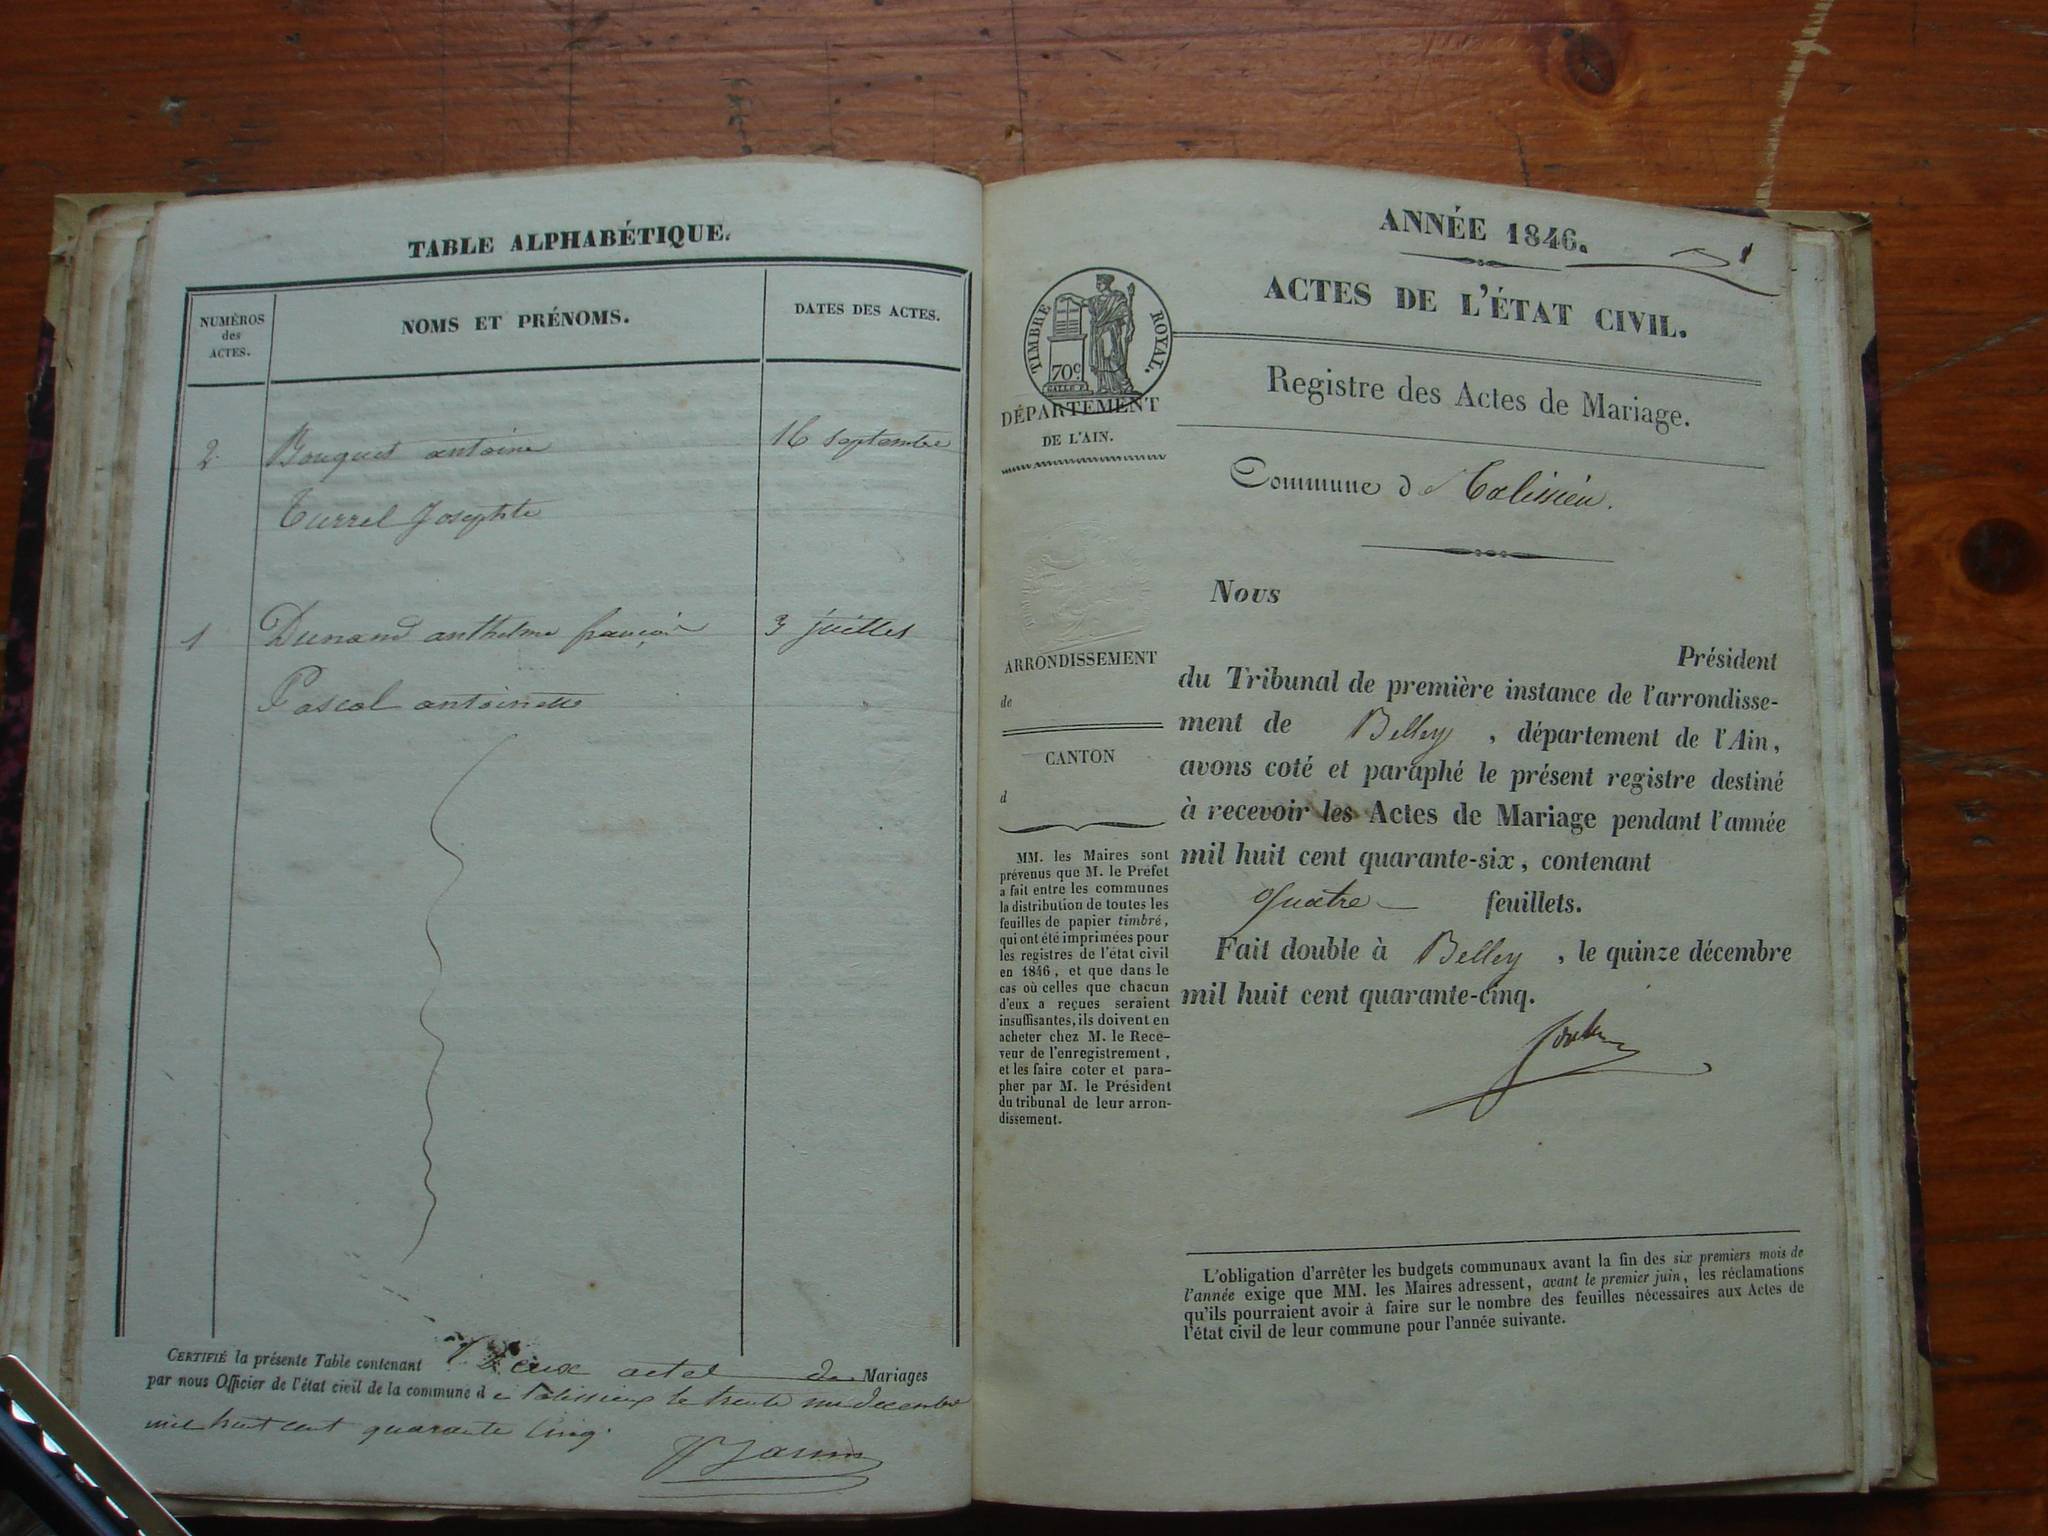 TABLE ALPHABÉTIQUE.
NUMÉROS des ACTES.
NOMS ET PRÉNOMS.
DATES DES ACTES.
2 Bouquet antoine 16 septembre
Turrel Josephte
1 Dunand anthelme françois 3 juillet
Pascal antoinette
CERTIFIÉ la présente Table contenant Deux actes de Mariages
par nous Officier de l'état civil de la commune de talissieu le trente un decembre
mil huit cent quarante cinq.
ANNÉE 1846.
1
ACTES DE L'ÉTAT CIVIL.
TIMBRE ROYAL.
70c
DÉPARTEMENT
DE L'AIN.
Registre des Actes de Mariage.
Commune de Talissieu.
Nous
Président
du Tribunal de première instance de l'arrondisse-
ment de Belley, département de l'Ain,
avons coté et paraphé le présent registre destiné
à recevoir les Actes de Mariage pendant l'année
mil huit cent quarante-six, contenant
quatre feuillets.
Fait double à Belley, le quinze décembre
mil huit cent quarante-cinq.
ARRONDISSEMENT
de
CANTON
d
MM. les Maires sont
prévenus que M. le Préfet
a fait entre les communes
la distribution de toutes les
feuilles de papier timbré,
qui ont été imprimées pour
les registres de l'état civil
en 1846, et que dans le
cas où celles que chacun
d'eux a reçues seraient
insuffisantes, ils doivent en
acheter chez M. le Rece-
veur de l'enregistrement,
et les faire coter et para-
pher par M. le Président
du tribunal de leur arron-
dissement.
L'obligation d'arrêter les budgets communaux avant la fin des six premiers mois de
l'année exige que MM. les Maires adressent, avant le premier juin, les réclamations
qu'ils pourraient avoir à faire sur le nombre des feuilles nécessaires aux Actes de
l'état civil de leur commune pour l'année suivante.